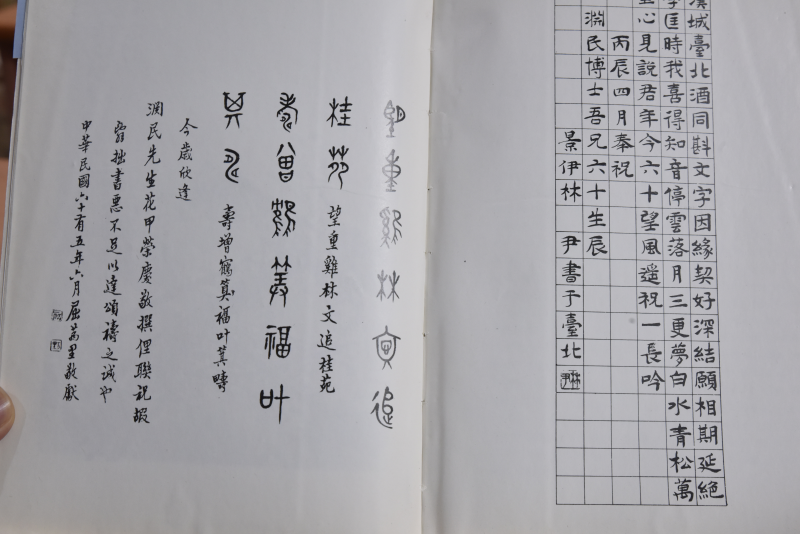 城臺北酒同斟文字因緣契好深結願相期延絕
匡時我喜得知音停雲落月三更夢白水青松萬
心見說君年今六十望風遥祝一長吟
丙辰四月奉祝
淵民博士吾兄六十生辰
景伊林 尹書于臺北
望重雞林文追
桂苑 望重雞林文追桂苑
壽曾鶴筭福叶
箕疇 壽增鶴筭福叶箕疇
今歲欣逢
淵民先生花甲榮慶敬撰俚聯祝嘏
拙書惡不足以達頌禱之誠也
中華民國六十有五年六月屈萬里敬獻